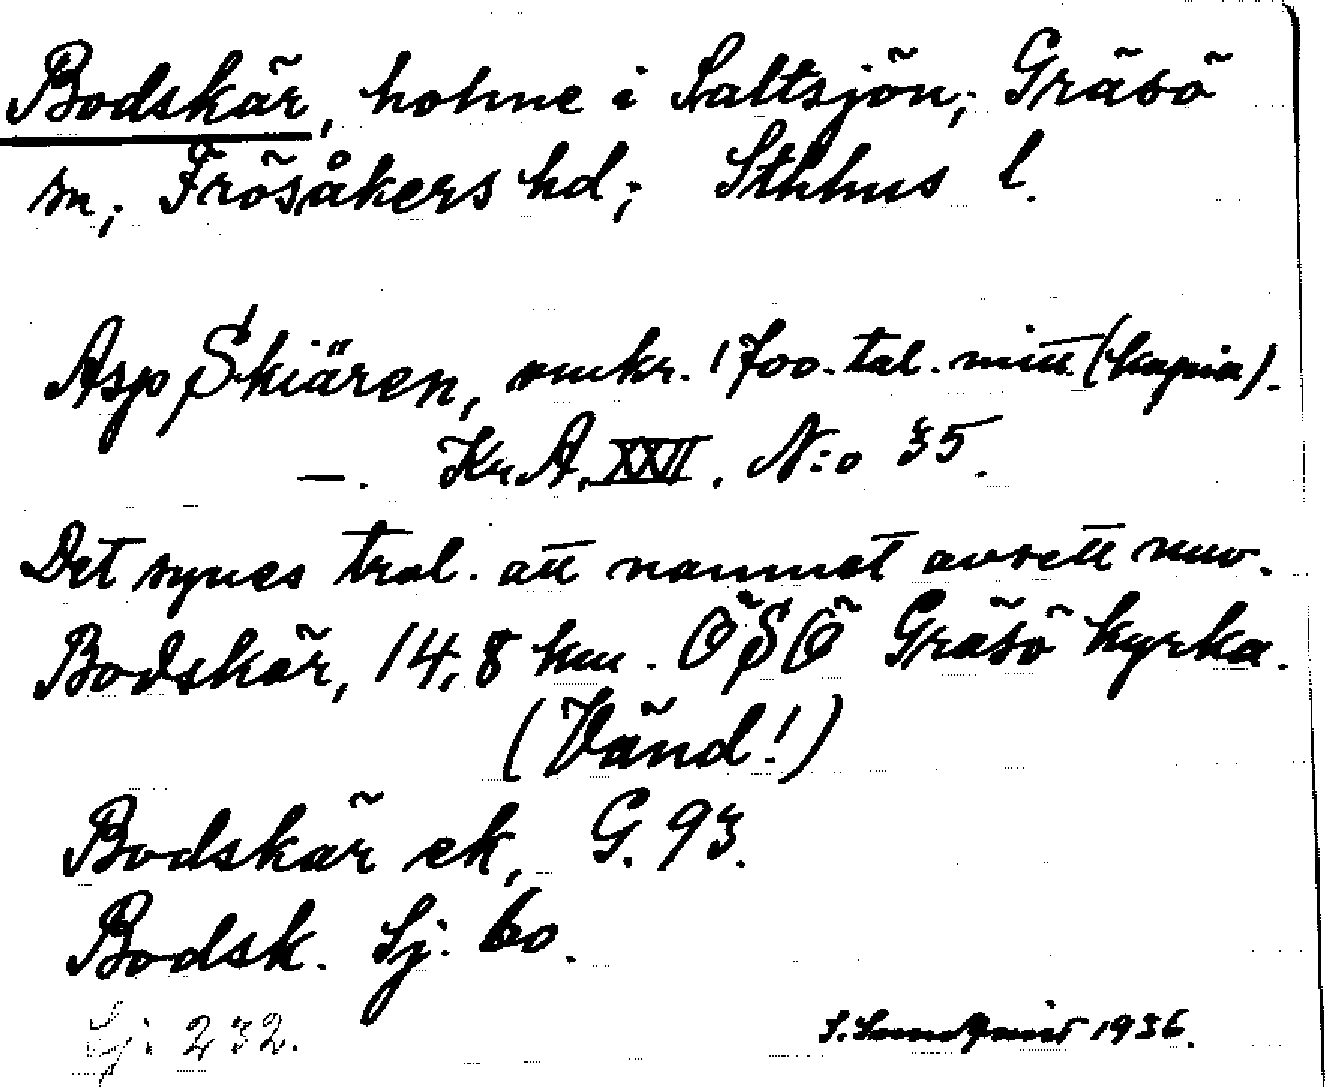 Bodskär, holme i Saltsjön; Gräsö
sn; Frösåkers hd; Sthlms l.
Asp Skiären, omkr. 1700-tal. mitt (kopia).
—. Kr A. XXII. N:o 35.
Det synes trol. att namnet avsett nuv.
Bodskär, 14,8 km. ÖSÖ Gräsö kyrka.
(Vänd!)
Bodskär ek, G. 93.
Bodsk. Sj. 60.
Sj. 232.
S. Lundqvist 1936.